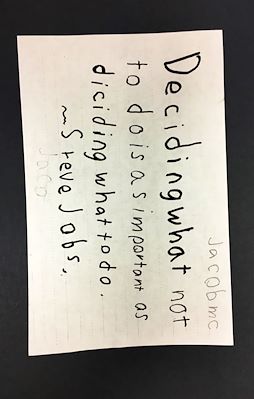 Jacobmc
Decidingwhat not
to do is as important as
diciding what to do.
~Steve Jobs.
Jaco